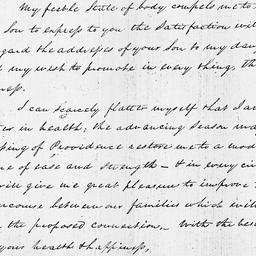 My feeble State of body compels me to
Son to express to you the Satisfaction wit
egard the addresses of your Son to my dau
d my wish to promote in every thing, th
iness.
I can scarcely flatter myself that I a
in health; the advancing Season ma
sing of Providence restore me to a mod
e of ease and strength – & in every cir
will give me great pleasure to improve
course between our families which will
the proposed connection, – With the bes
your health & happiness,